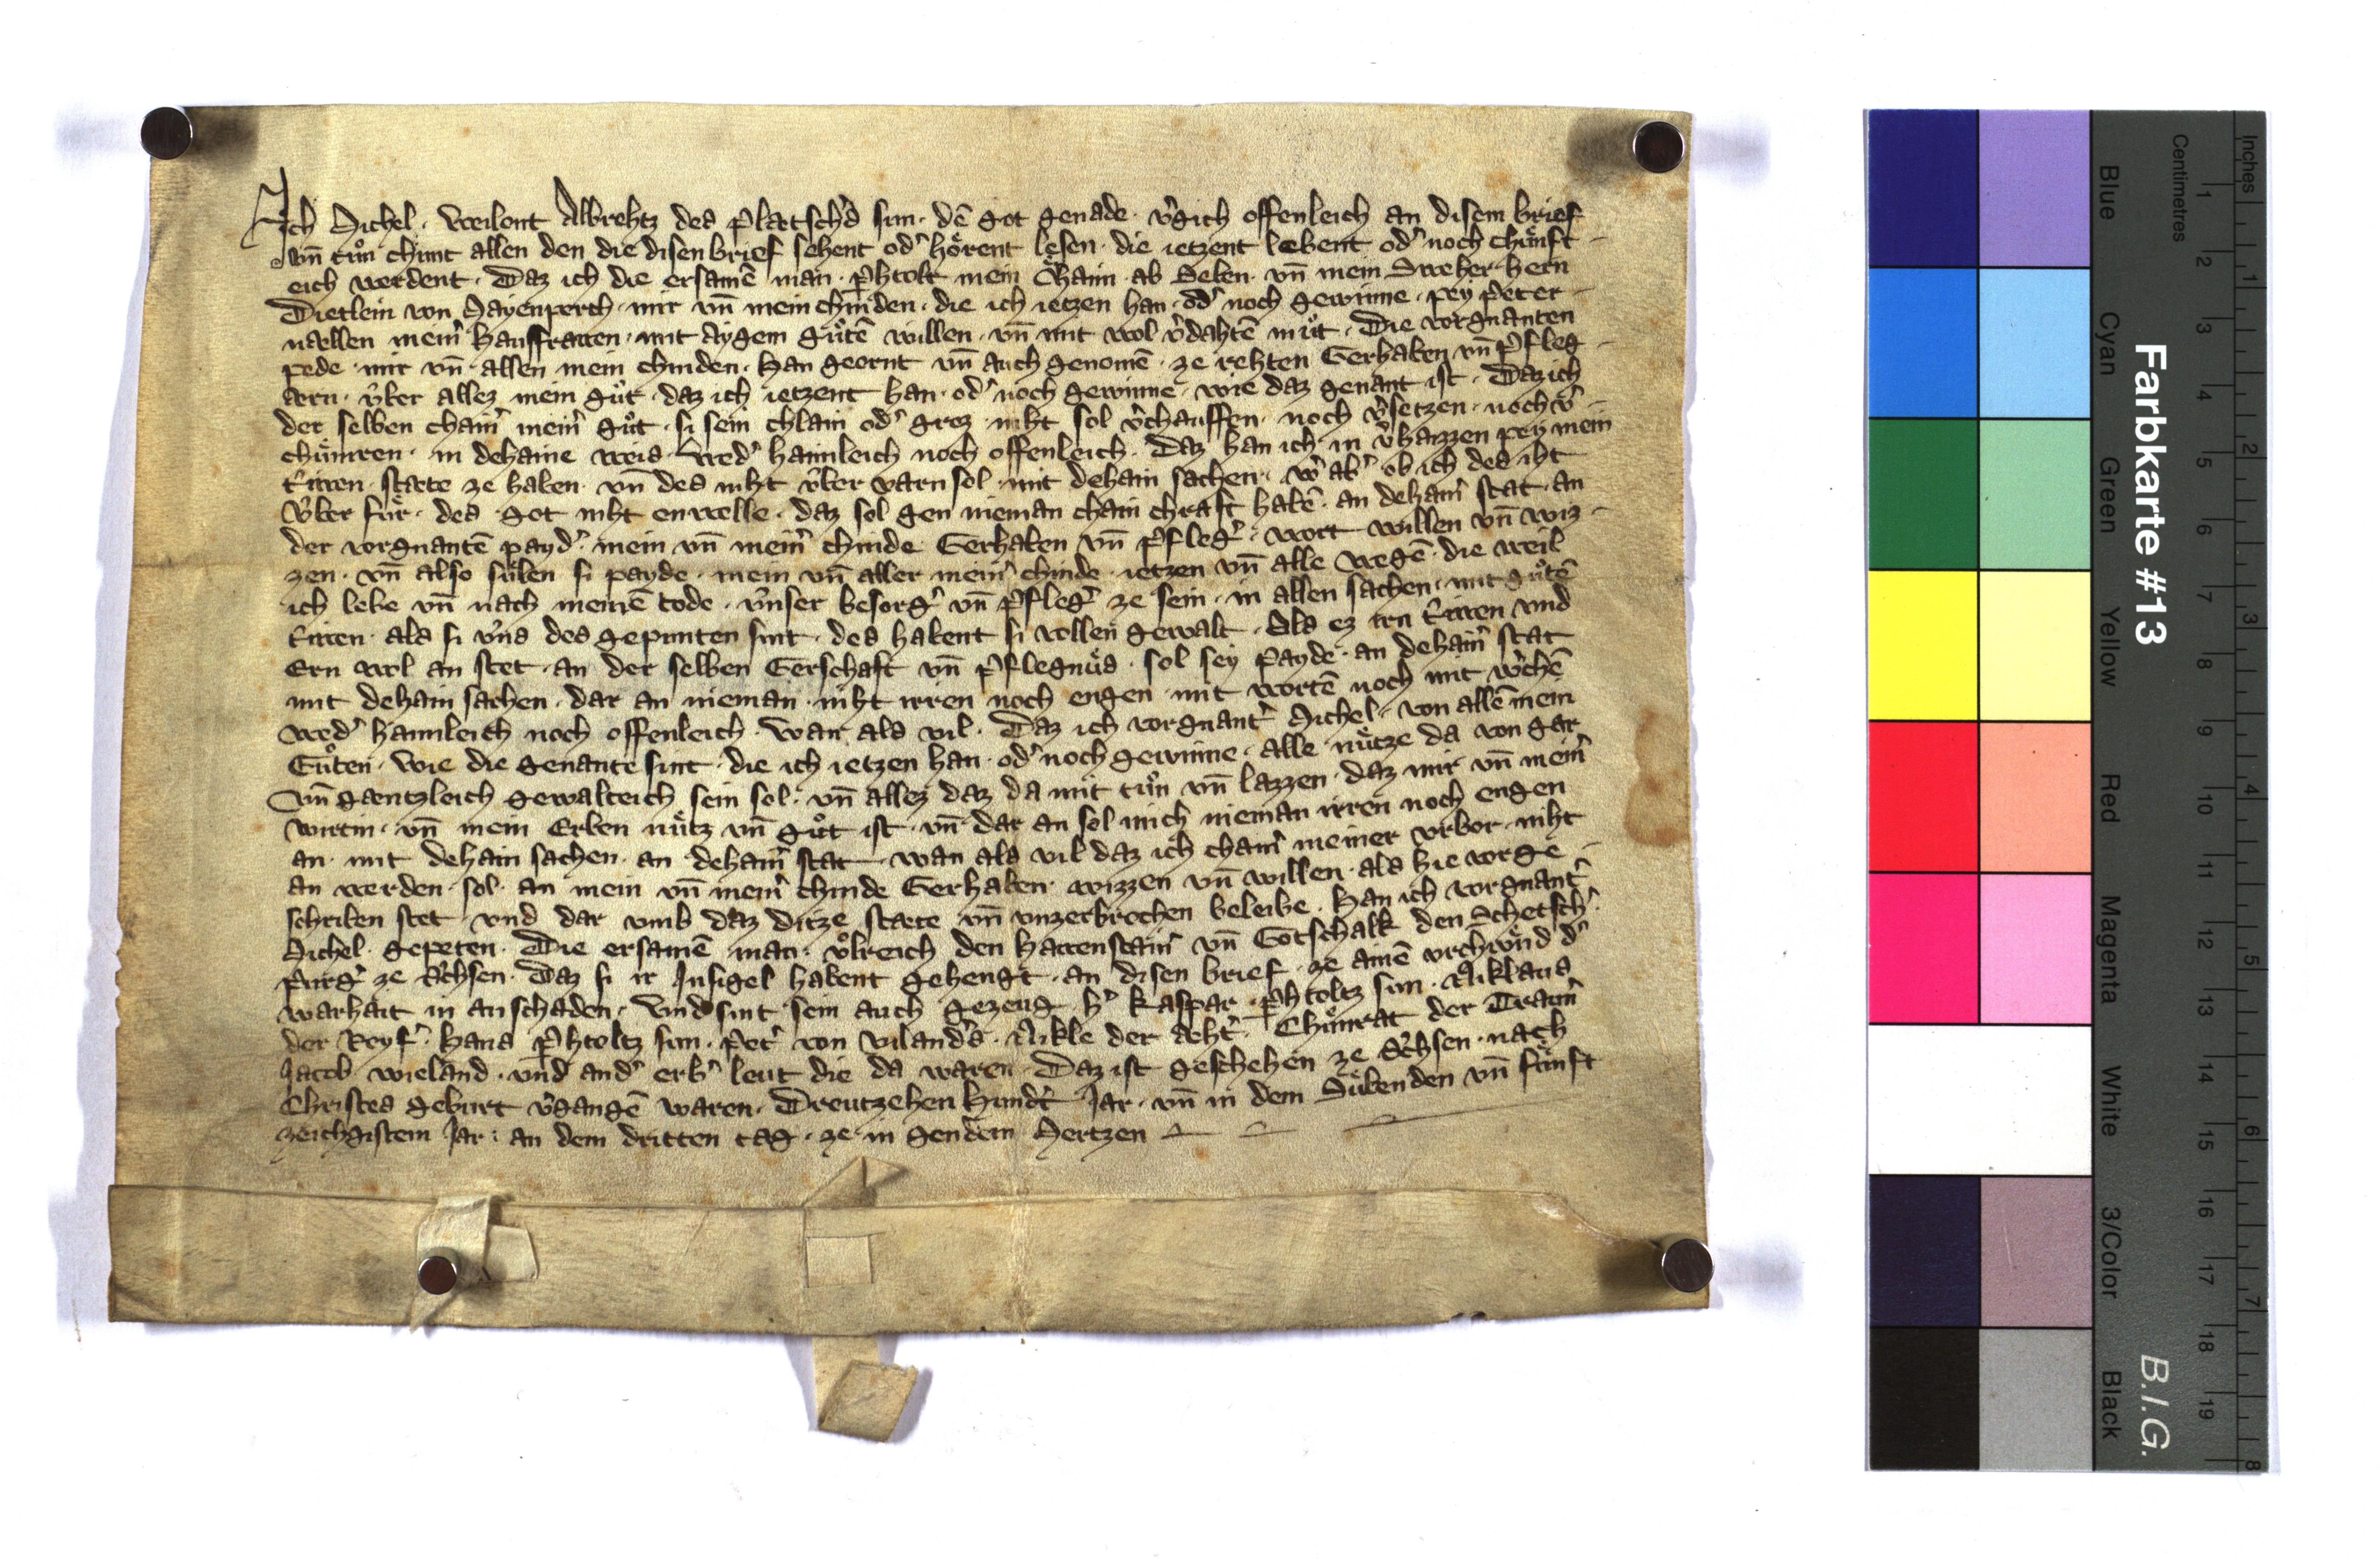 Ich Michel · weilent Albrehtz des Platschˀs sun · dē got genade · vˀgich offenleich an disem brief
vn̄ tůn chunt allen den die disen brief sehent odˀ hoͤrent lesen · die ietzent lebent odˀ noch chuͤnft -
eich werdent · Daz ich die ersamē man · Pˀhtolt mein Ohaim ab Seben · vn̄ mein Sweher hern
Dietlein von Mayenperch · mir vn̄ mein chinden · die ich ietzen han · odˀ noch gewinne · pey Peter -
nellen meinˀ hausfrawen · mit aygem gůtē willen · vn̄ mit wol vˀdahtē můt · Die vorgnanten
pede · mir vn̄ allen mein chinden · han geornt vn̄ auch genomē · ze rehten Gerhaben vn̄ Pfleg -
ern · vͤber allez mein gůt · daz ich ietzent han · odˀ noch gewinne · wie daz genant ist · Daz ich
der selben chainˀ meinˀ gůt · si sein chlain odˀ groz · niht sol vˀchauffen · noch vˀsetzen · noch vˀ -
chuͤmren · in dehaine weis · wedˀ haimleich noch offenleich · Daz han ich in vˀhaizzen pey mein
triwen · staete ze haben · vn̄ des niht vͤber varn sol · mit dehain sachen · wˀ abˀ ob ich des iht
vͤber fuͤr · des got niht enwelle · daz sol gen nieman chain chraft habē · an dehainˀ stat · an
der vorgnantē paydˀ · mein vn̄ meinˀ chinde Gerhaben vn̄ Pflegˀ · wort willen vn̄ wiz -
zen · vn̄ also suͤlen si payde · mein vn̄ aller meinˀ chinde · ietzen vn̄ alle wegē · die weil
ich lebe vn̄ nach meinē tode · vͤnser besorgˀ vn̄ Pflegˀ ze sein · in allen sachen · mit gůtē
triwen · als si vͤns des gepunten sint · des habent si vollen gewalt · Als ez irn triwen vnd
Ern wol an stet · an der selben Gerschaft vn̄ Pflegnuͤs · sol sey payde · an dehainˀ stat
mit dehain sachen · dar an nieman · niht irren noch engen · mit wortē noch mit wˀchē
wedˀ haimleich noch offenleich · wan als vil · Daz ich vorgnantˀ Michel · von allē mein
Gůten · wie die genante sint · die ich ietzen han · odˀ noch gewinne · alle nuͤtze da von gar
vn̄ gaentzleich gewalteich sein sol · vn̄ allez daz da mit tůn vn̄ lazzen · daz mir vn̄ meinˀ
wirtin · vn̄ mein Erben nuͤtz vn̄ gůt ist · vn̄ dar an sol mich nieman irren noch engen
an · mit dehain sachen · an dehainˀ stat · wan als vil daz ich chainˀ meiner vrbor · niht
an werden · sol · an mein vn̄ meinˀ chinde Gerhaben · wizzen vn̄ willen · als hie vorge -
schriben stet · vnd dar vmb daz ditze staete vn̄ vnzerbrochen beleibe · han ich vorgnantˀ
Michel · gepeten · Die ersamē man · vͦlreich den Hawenstainˀ vn̄ Gotschalk den Schetschˀ
purgˀ ze Bˀchsen · Daz si ir Insigel habent gehengt · an disen brief · ze ainē vrchuͤnd dˀ
warhait in an schaden · Vnd sint sein auch gezeug · hˀ Kaspar · Pˀhtoltz sun · Niklaus
der Reyfˀ · Hans Pˀhtoltz sun · Petˀ von vilandˀs · Nikle der Aehtˀ · Chůnrat der Traurˀ
Jacob wieland · vnd andˀ erbˀ leut die da waren · Daz ist geschehen ze Bˀchsen · nach
Christes geburt vˀgangē waren · Dreutzehen hundˀt Jar · vn̄ in dem Suͤbenden vn̄ fuͤnft
zeichgistem Jar · an dem dritten tag · ze in gendem Mertzen
Farbkarte #13
B.I.G.
Inches 1 2 3 4 5 6 7 8
Centimetres 1 2 3 4 5 6 7 8 9 10 11 12 13 14 15 16 17 18 19
Blue Cyan Green Yellow Red Magenta White 3/Color Black